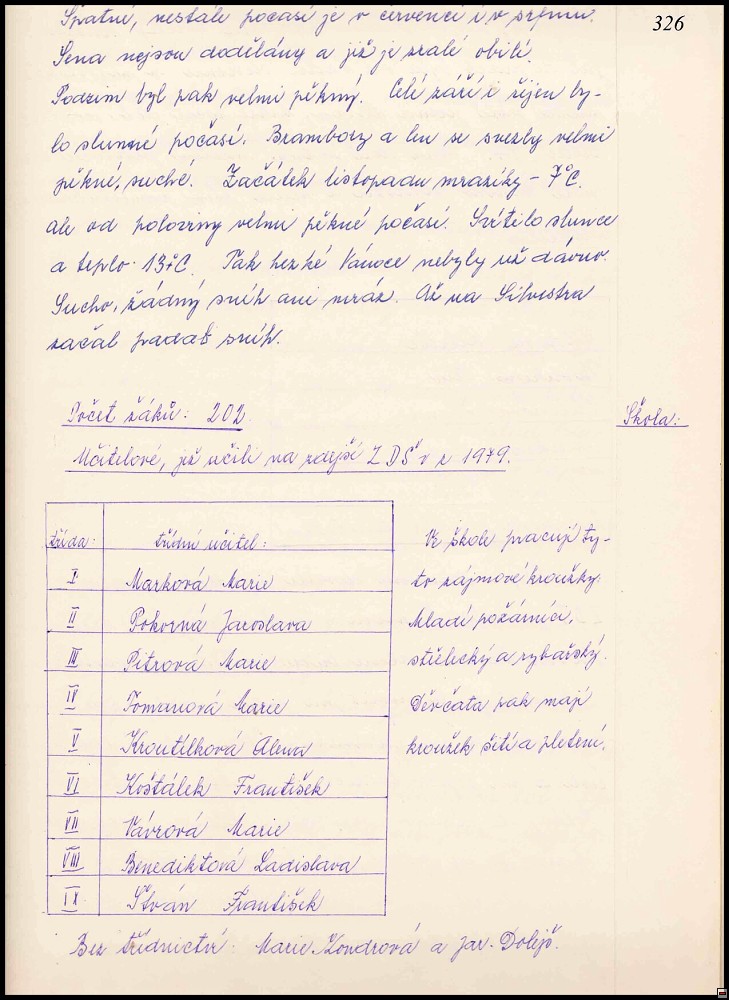 326
Špatné, nestálé počasí je v červenci i v srpnu.
Sena nejsou dodělány a již je zralé obilí.
Podzim byl pak velmi pěkný. Celé září i říjen by-
lo slunné počasí. Brambory a len se svezly velmi
pěkné, suché. Začátek listopadu mrazíky - 7°C.
ale od poloviny velmi pěkné počasí. Svítilo slunce
a teplo 13°C. Tak hezké Vánoce nebyly už dávno.
Sucho, žádný sníh ani mráz. Až na Silvestra
začal padat sníh.
Počet žáků: 202.
Škola:
Učitelové, již učili na zdejší ZDŠ v r 1979.
třída: třídní učitel:
I Marková Marie
II Pokorná Jaroslava
III Pitrová Marie
IV Tomanová Marie
V Kroutilková Alena
VI Košťálek František
VII Vávrová Marie
VIII Benediktová Ladislava
IX Štván František
Ve škole pracují ty-
to zájmové kroužky:
Mladí požárníci,
střelecký a rybářský.
Děvčata pak mají
kroužek šití a pletení.
Bez třídnictví: Marie Kondrová a Jar. Dolejš.